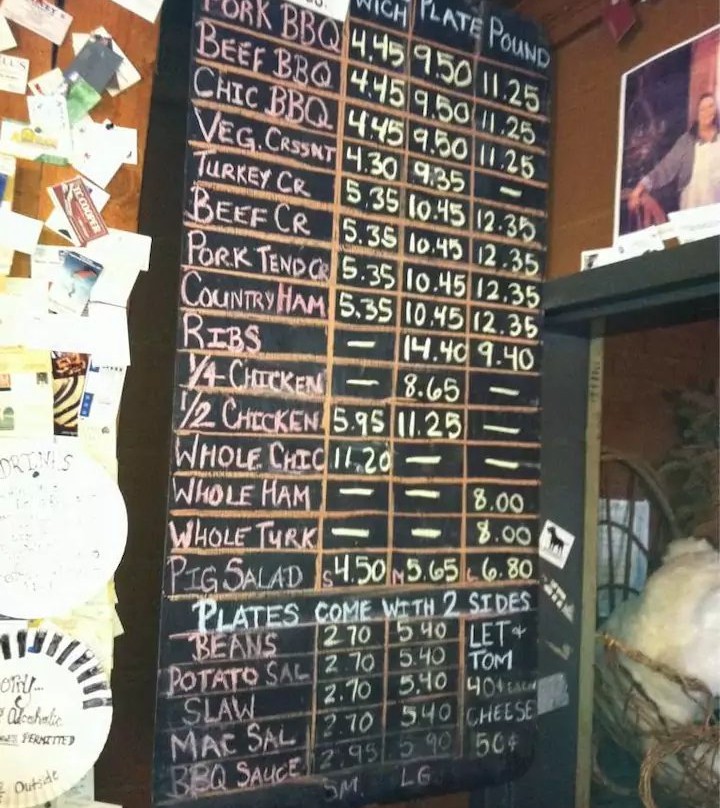 WICH PLATE POUND
PORK BBQ 4.45 9.50 11.25
BEEF BBQ 4.45 9.50 11.25
CHIC BBQ 4.45 9.50 11.25
VEG. CRSSNT 4.30 9.35 —
TURKEY CR 5.35 10.45 12.35
BEEF CR 5.35 10.45 12.35
PORK TEND CR 5.35 10.45 12.35
COUNTRY HAM 5.35 10.45 12.35
RIBS — 14.40 9.40
1/4 CHICKEN — 8.65 —
1/2 CHICKEN 5.95 11.25 —
WHOLE CHIC 11.20 — —
WHOLE HAM — — 8.00
WHOLE TURK — — 8.00
PIG SALAD S 4.50 M 5.65 L 6.80
PLATES COME WITH 2 SIDES
BEANS 2.70 5.40 LET +
POTATO SAL 2.70 5.40 TOM
SLAW 2.70 5.40 40¢ EACH
MAC SAL 2.70 5.40 CHEESE
BBQ SAUCE 2.95 5.90 50¢
SM. LG
DRINKS
Alcoholic
PERMITTED
Outside